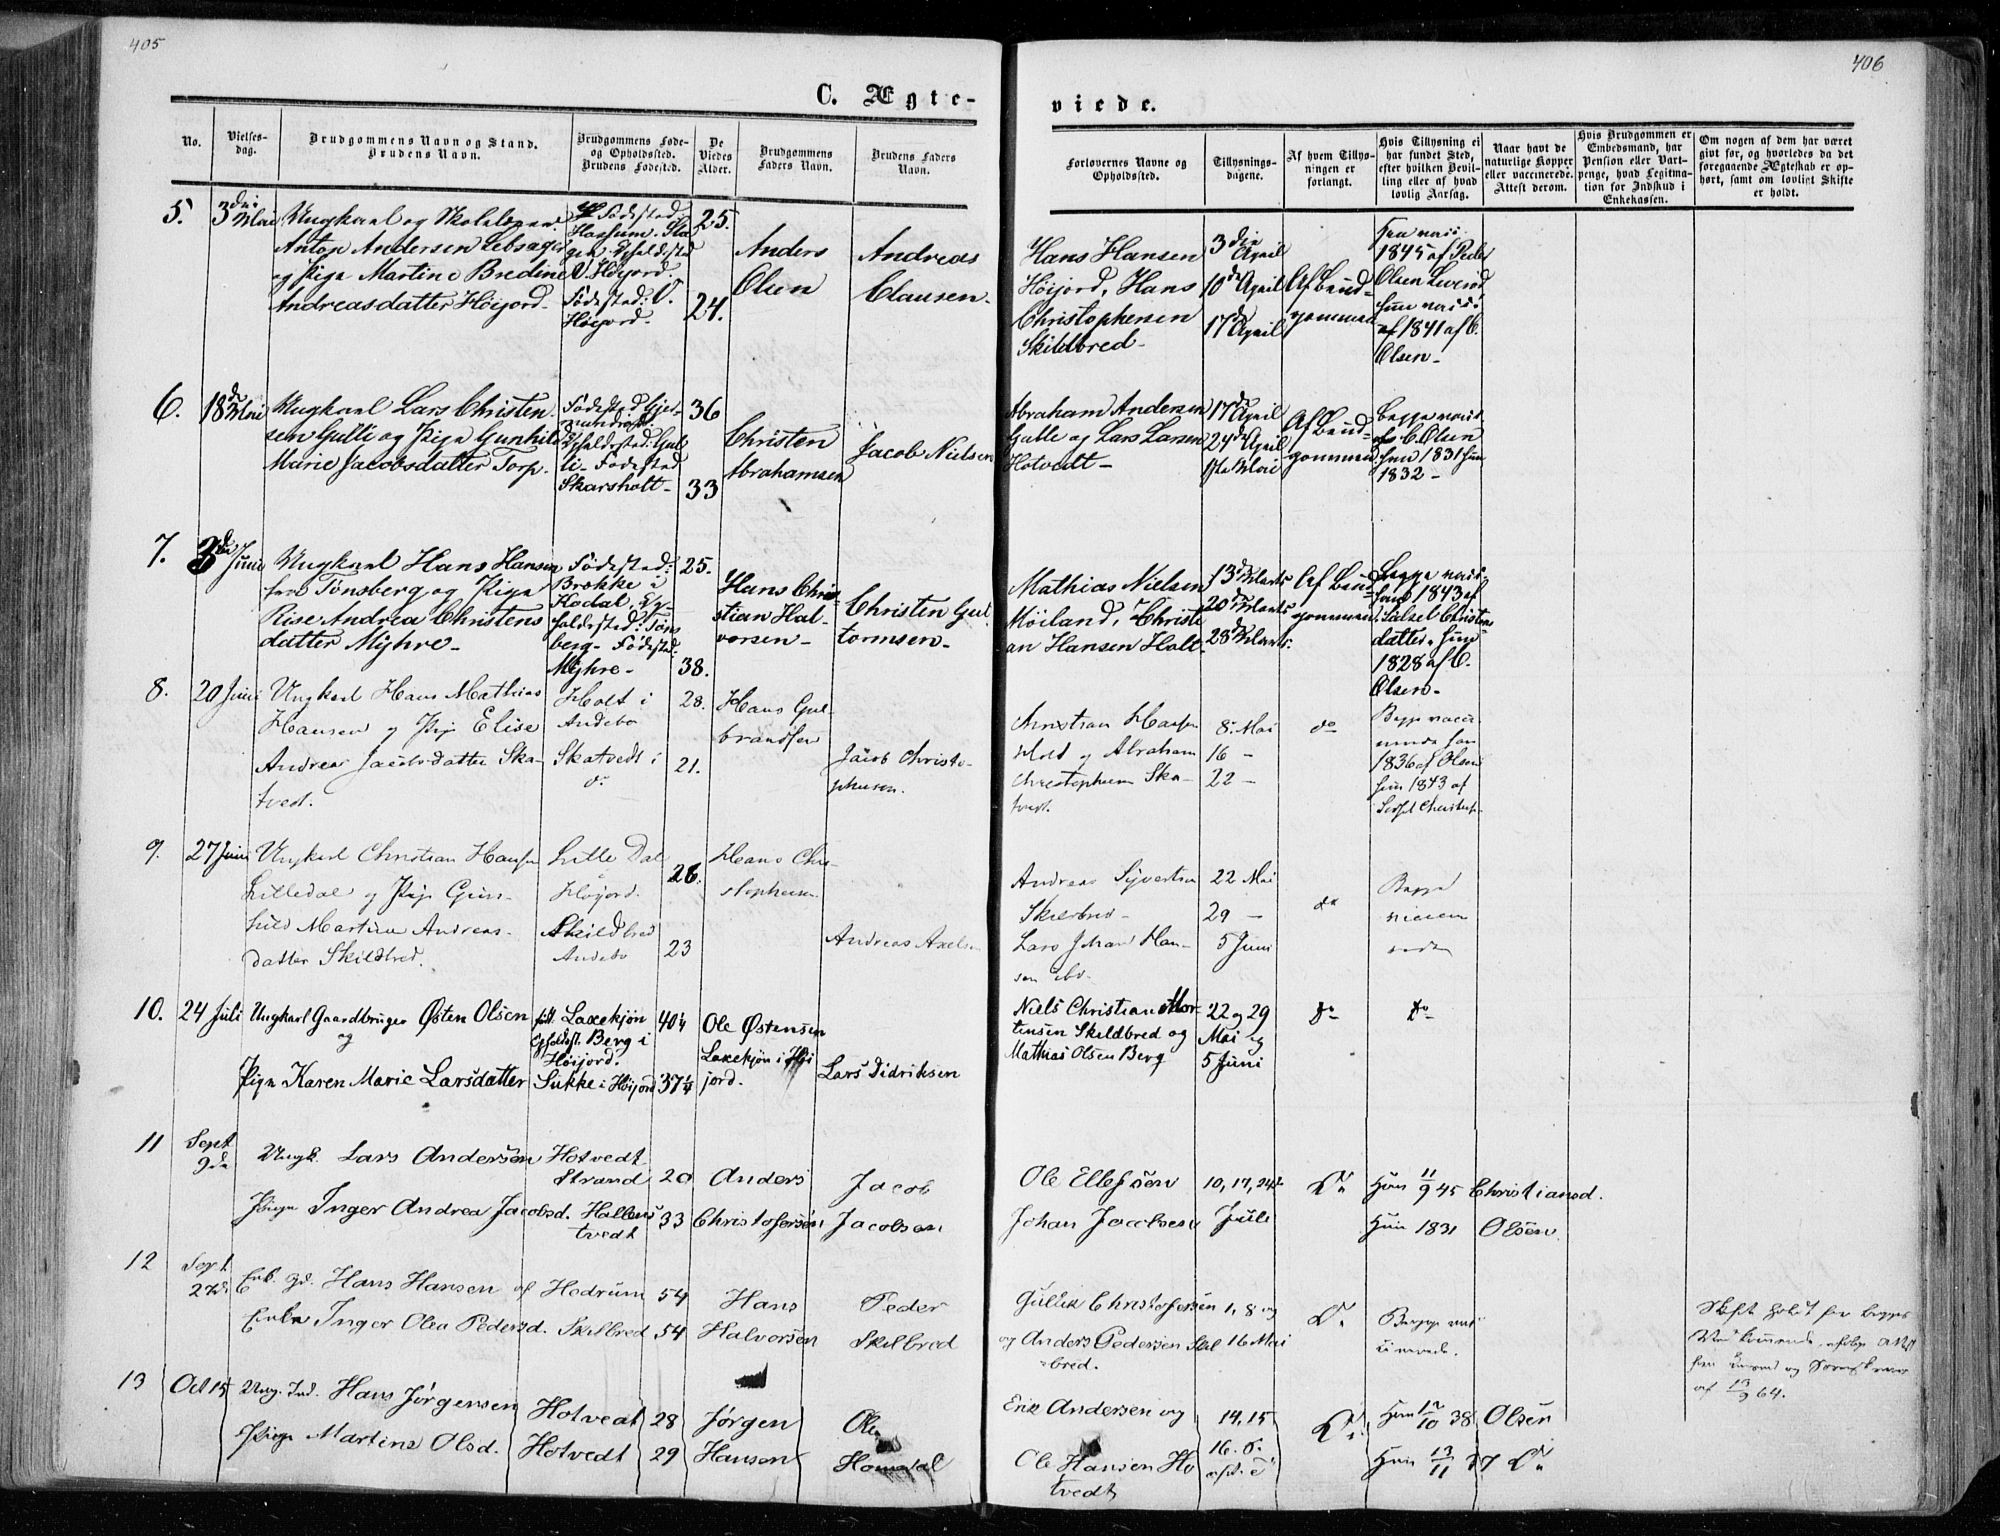 405
406
C. Ægte-
viede.
No.
Vielses-
dag.
Brudgommens Navn og Stand.
Brudens Navn.
Brudgommens Føde-
og Opholdssted.
Brudens Fødested.
De
Viedes
Alder.
Brudgommens
Faders Navn.
Brudens Faders
Navn.
Forlovernes Navne og
Opholdssted.
Tillysnings-
dagene.
Af hvem Tillys-
ningen er
forlangt.
Hvis Tillysning ei
har fundet Sted,
efter hvilken Bevil-
ling eller af hvad
lovlig Aarsag.
Naar havt de
naturlige Kopper
eller vaccinerede.
Attest derom.
Hvis Brudgommen er
Embedsmand, har
Pension eller Vart-
penge, hvad Legitma-
tion for Indskud i
Enkekassen.
Om nogen af dem har været
givt før, og hvorledes da det
foregaaende Ægteskab er op-
hørt, samt om lovligt Skifte
er holdt.
5.
3die Mai
Ungkarl og
Anton Andersen
og Pige Martine Bredine
Andreasdatter Höijord.
Födested:
V. Höijord.
Födested: V.
Höijord.
25.
24.
Anders
Olsen
Andreas
Clausen.
Hans Hansen
Höijord, Hans
Christophersen
Skildbred
3die April
10de April
17de April
Af Brud-
gommen
1845 af Peder
Olsen
1841 af C.
Olsen
6.
18de Mai
Ungkarl Lars Christen-
sen Gulli og Pige Gunhild
Marie Jacobsdatter Torp.
Födested
Gul-
li. Födested
Skarsholt
36
33
Christen
Abrahamsen
Jacob Nielsen
Abraham Andersen
Gulle og Lars Larsen
Hotvedt
17de April
24de April
1ste Mai
Af Brud-
gommen
Begge
af C. Olsen
1831 hun
1832
7.
3die Juni
Ungkarl Hans Hansen
fra Tönsberg og Pige
Andrea Christens-
datter Myhre
Födested:
Brekke i
Kodal,
Töns-
berg. Födested:
Myhre
25.
38.
Hans Chri-
stian Hal-
vorsen
Christen Gul-
tormsen
Mathias Nielsen
Möiland, Christi-
an Hansen Holt.
13de Marts
20de Marts
28de Marts.
Af Brud-
gommen
Begge
1843 af
Christens-
datter, hun
1828 af C.
Olsen.
8.
20 Juni
Ungkarl Hans Mathias
Hansen og Pige Elise
Andrea Jacobsdatter Ska-
tvedt.
Holt i
Andebo
Skatvedt i
do
28.
21.
Hans Gul-
brandsen
Jacob Christo-
phersen.
Christian Hansen
Hold og Abraham
Christophersen Ska-
tvedt.
8. Mai
16 -
22 -
do
Begge vacci-
1836 af Olsen
hun 1843 af
9.
27 Juni
Ungkarl Christian Hansen
Lilledal og Pige Gun-
hild Martine Andreas-
datter Skildbred.
Lille Dal
Höijord.
Skildbred
Andebo
26.
23
Hans Chri-
stophersen
Andreas Axelsen
Andreas Syvertsen
Skildbred
Lars Johan Han-
sen ibd.
22 Mai
29 -
5 Juni
do
Begge
10.
24 Juli
Ungkarl Gaardbruger Østen Olsen
og
Pige Karen Marie Larsdatter
født Laxekjøn
Opholdst. Berg i
Höijord.
Sukke i Höijord
40¼
37¼
Ole Østensen
Laxekjøn i Høi
jord.
Lars Didriksen
Niels Christian Mor-
tensen Skildbred og
Mathias Olsen Berg
22 og 29
Mai og
5 Juni
Do
Do
11
Sept
9de
Ungk. Lars Andersen
Pige Inger Andrea Jacobsd.
Hotvedt
Strand
Hallens
tvedt
20
33
Anders
Christofersen
Jacob
Jacobsen
Ole Ellefsen
Johan Jacobsen
10, 17, 24de
Juli
Do
Han 11/9 45 Christiansd.
Hun 1831 Olsen
12
Sept
27de
Enk. gd. Hans Hansen af
Enke Inger Olea Pedersd.
Hedrum
Skilbred
54
54
Hans
Halvorsen
Peder
Skilbred
Gullik Christofersen
og Anders Pedersen Skil
bred.
1, 8 og
16 Mai
Do
Begge
Skifte holdt for begges
Vedkommende, ifølge Attest
fra
og Sorenskriver
af 13/9 64.
13
Oct 15
Ung. Ind. Hans Jørgensen
Pige Martine Olsd.
Hotvedt
Hotvedt
28
29
Jørgen
Hansen
Ole
Erik Andersen og
Ole Hansen Ho
tvedt
14, 15
16.
Do
Han 12/10 38 Olsen
Hun 13/11 37 Do